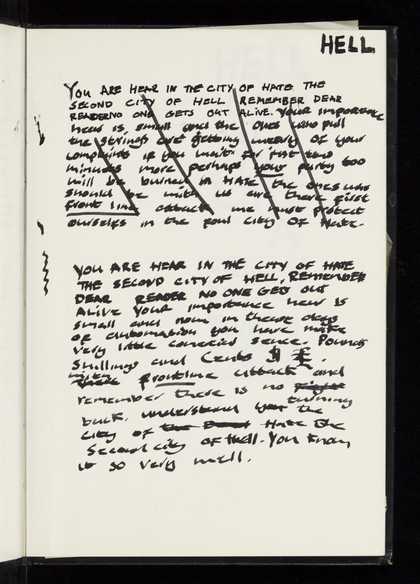 HELL
YOU ARE HEAR IN THE CITY OF HATE THE
SECOND CITY OF HELL REMEMBER DEAR
READER NO ONE GETS OUT ALIVE. YOUR importance
hear is small and the ones who pull
the strings are getting weary of your
complaints if you wait for just two
minutes more perhaps your party too
will be burned in HATE the ones who
should be with us are there first
front line attack we must protect
ourselfs in the foul city Of Hate.
YOU ARE HEAR IN THE CITY OF HATE
THE SECOND CITY OF HELL, REMEMBER
DEAR READER NO ONE GETS OUT
ALIVE YOUR importance hear is
small and now in these days
of automation you have make
very little sence. Pounds
Shillings and Cents
with frontline attack and
remember there is no turning
back. understand the
City of the Dead Hate the
Second city of Hell. You know
it so very well.